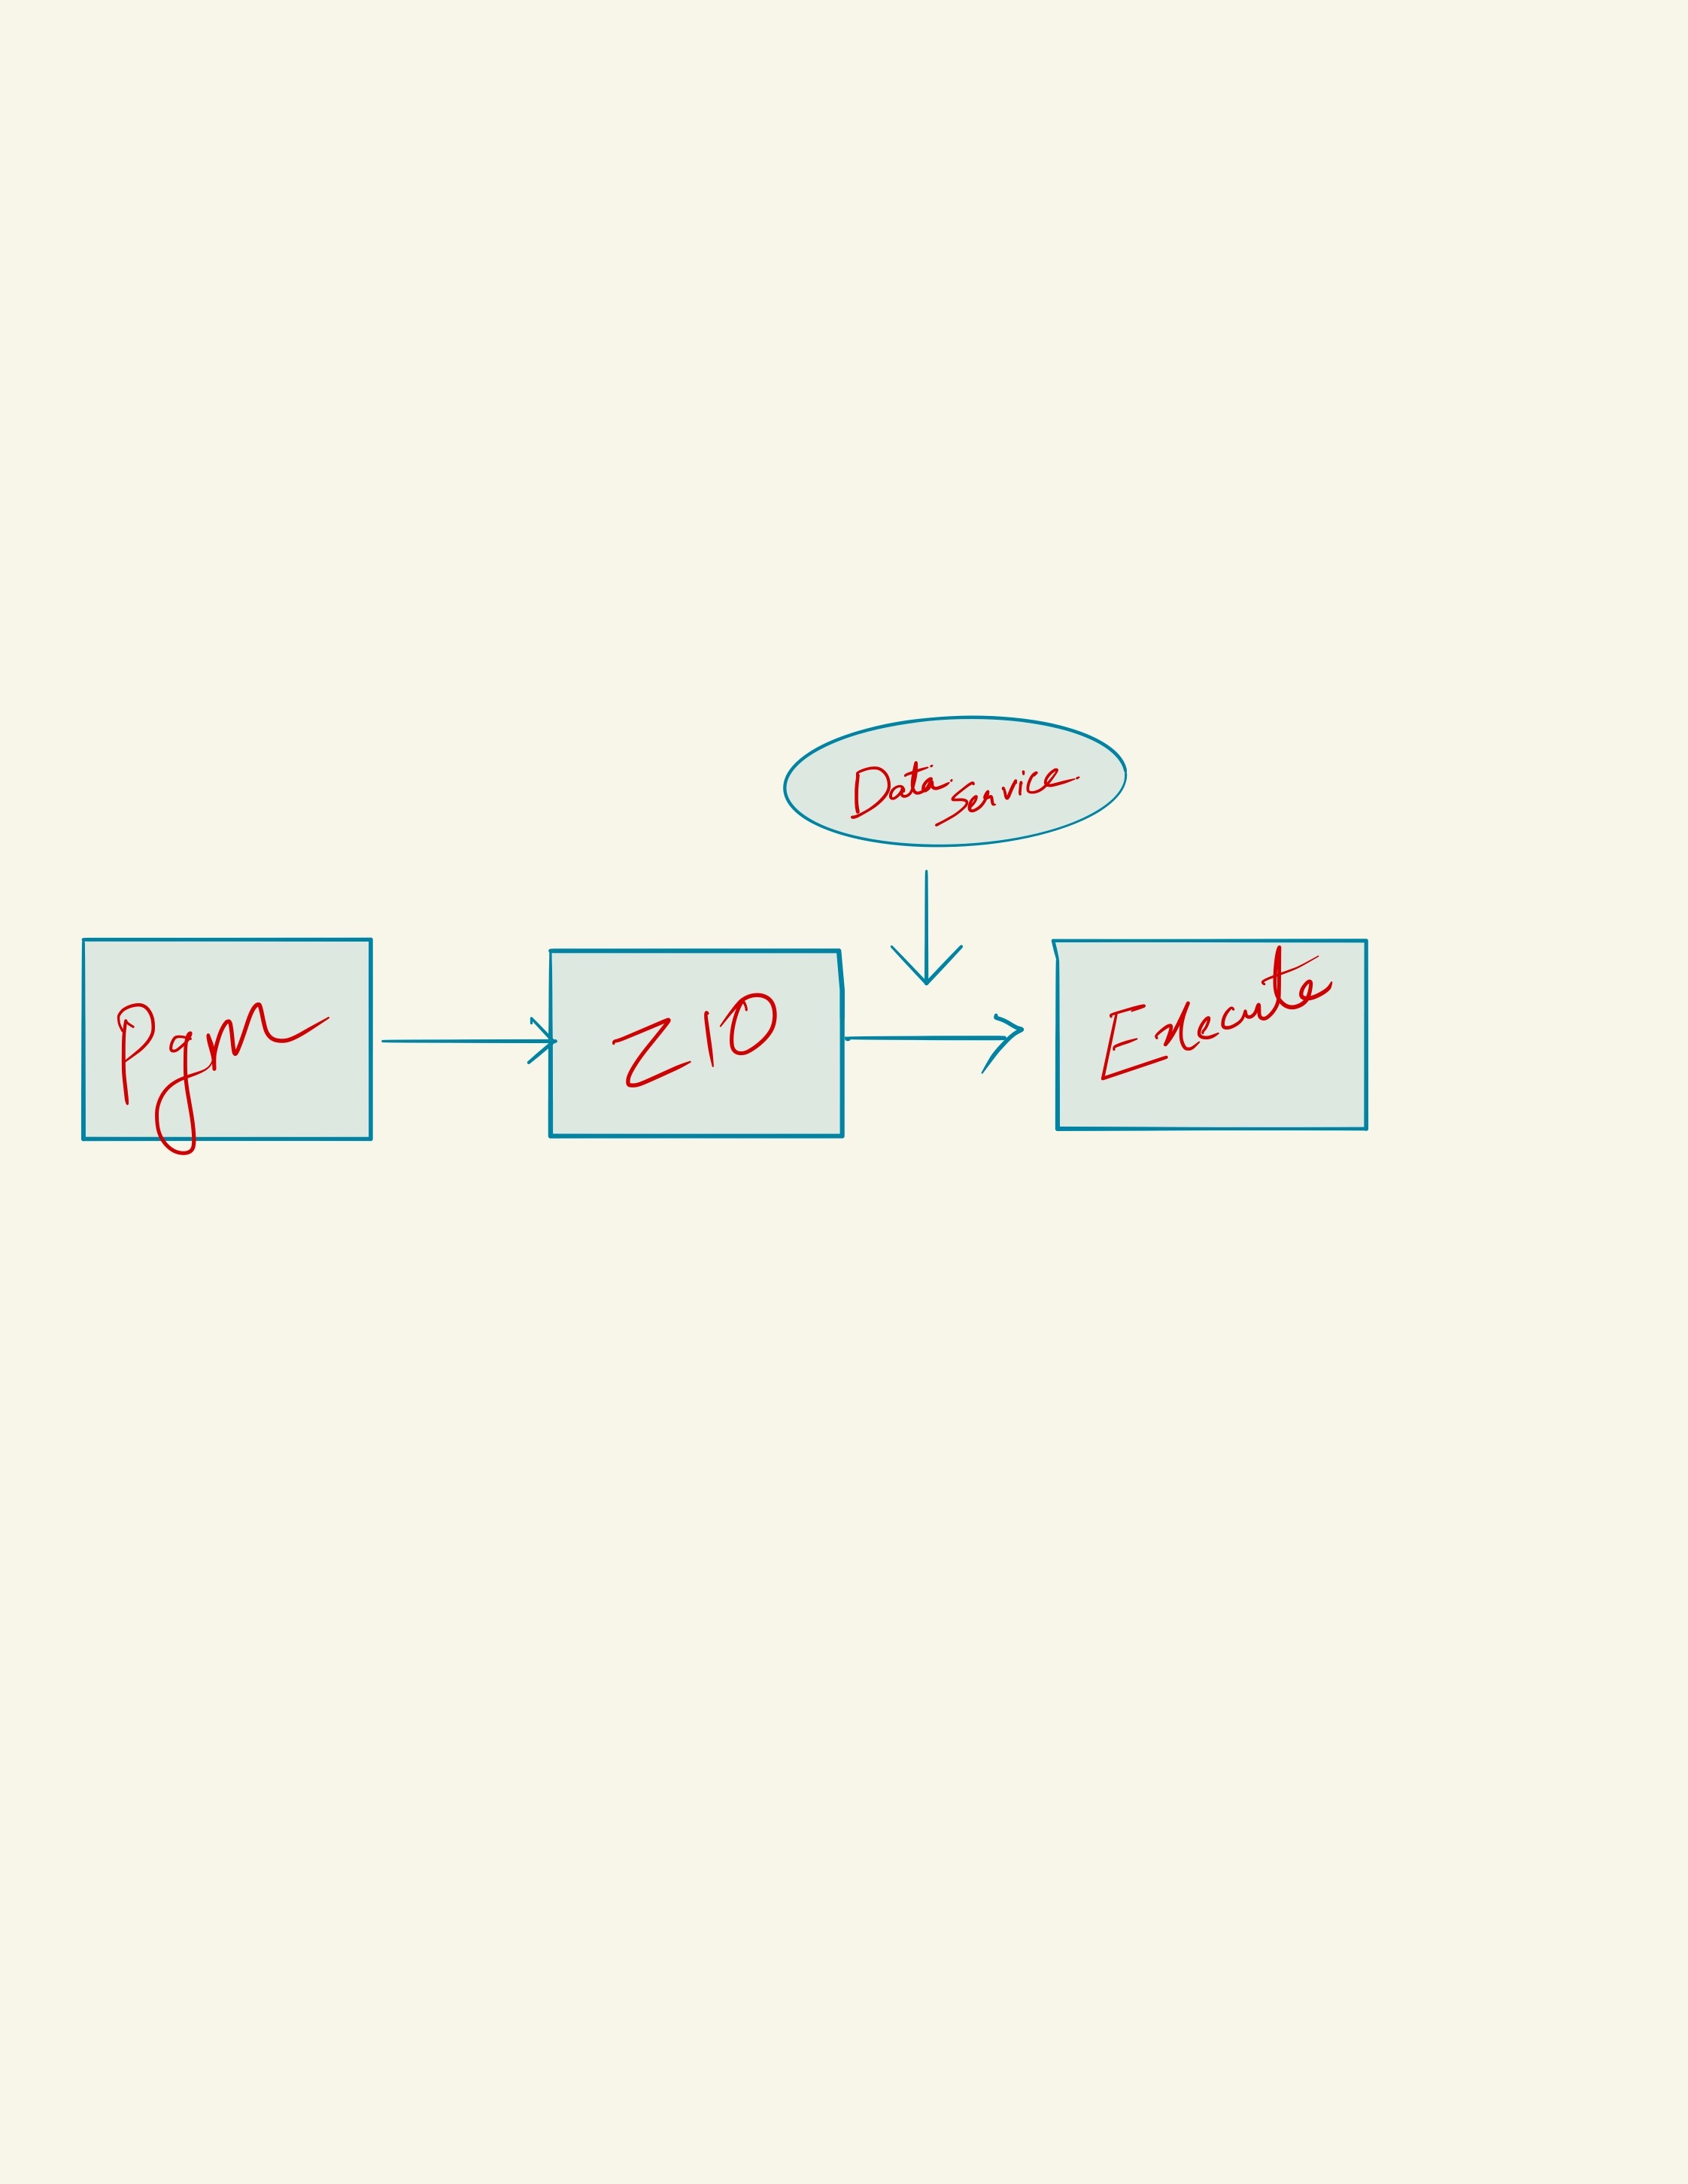 Data Service
Pgm
ZIO
Execute